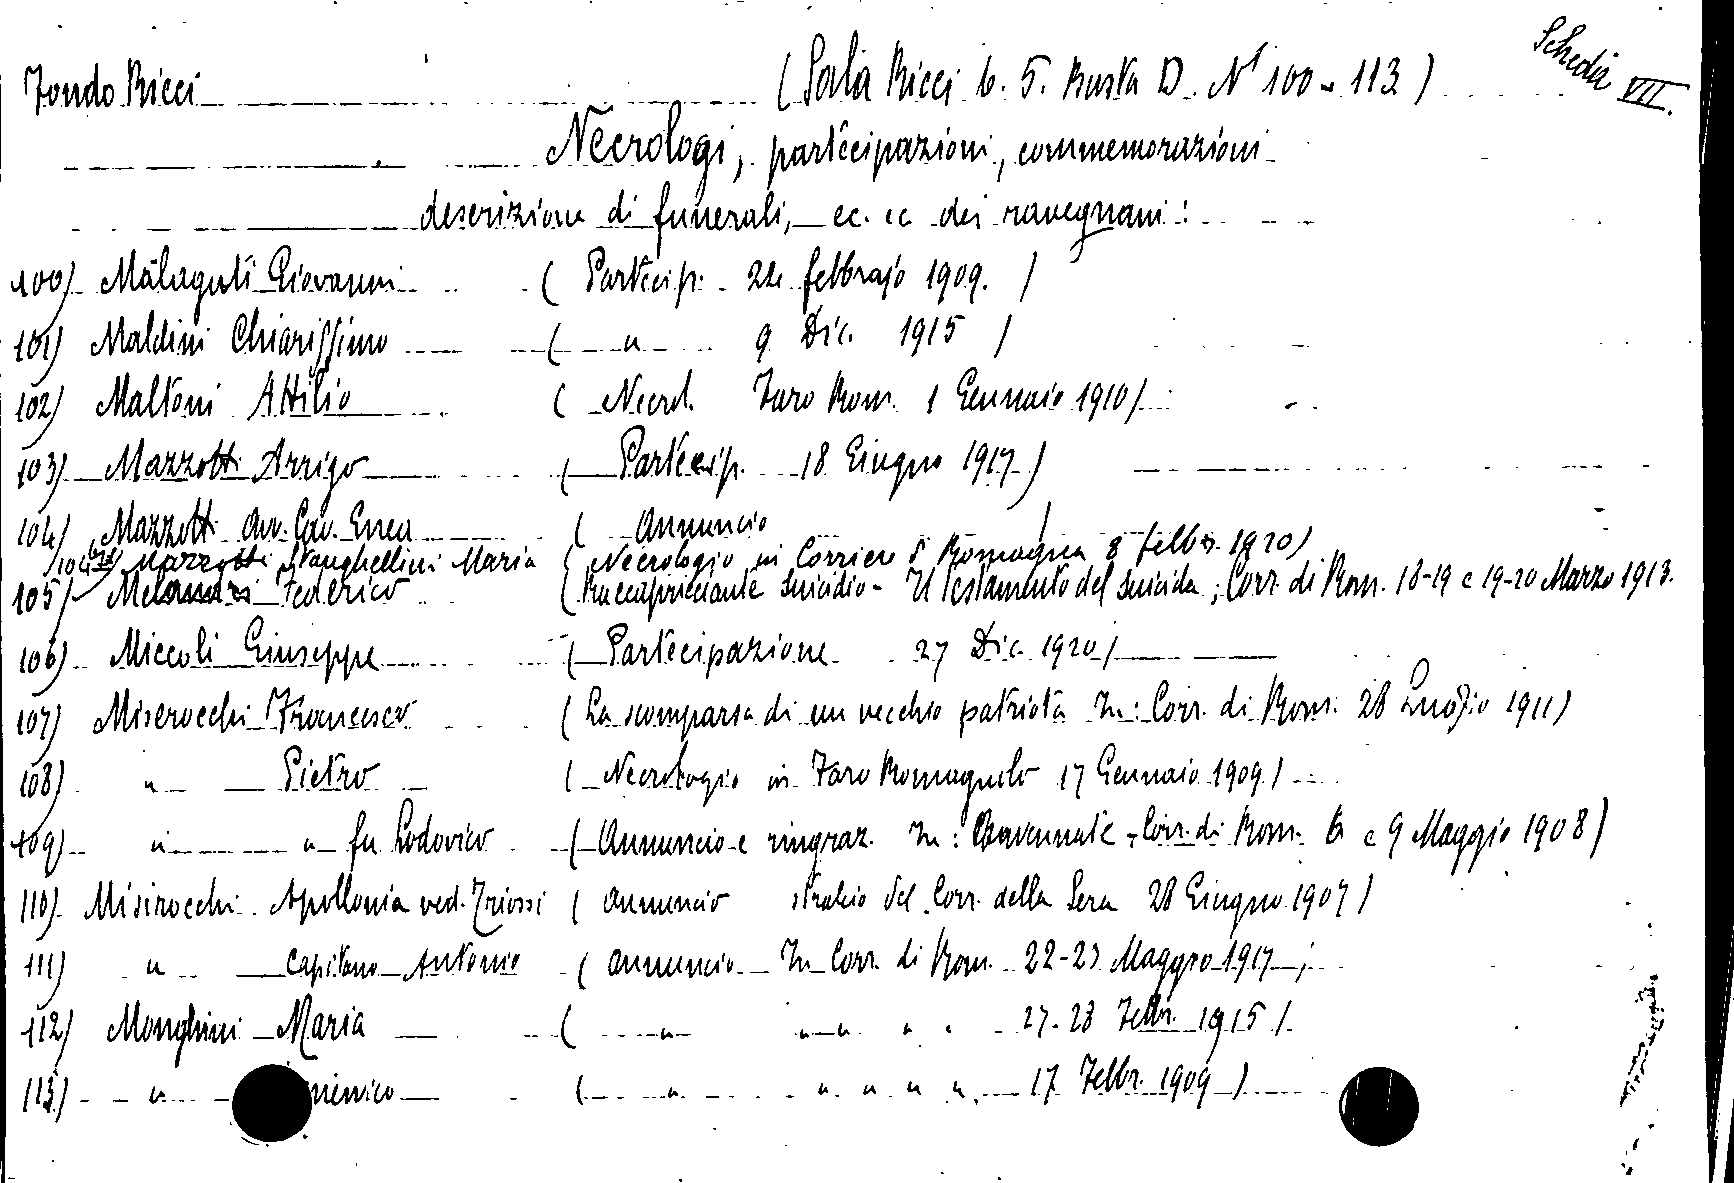 Scheda VII.
Fondo Ricci (Sala Ricci b. 5. Busta D. Nⁱ 100-113)
Necrologi, partecipazioni, commemorazioni
descrizione di funerali, ec. ec dei ravegnani:
100) Malaguti Giovanni (Partecip. 22 febbrajo 1909.)
101) Maldini Chiarissimo ( " 9 Dic. 1915)
102) Maltoni Attilio (Necrol. Faro Rom. 1 Gennaio 1910)
103) Mazzotti Arrigo (Partecip. 18 Giugno 1917)
104) Mazzotti Avv. Cav. Enea (Annuncio )
104 bis) Mazzotti Vanghellini Maria (Necrologio in Corriere d. Romagna 8 febbr. 1920)
105) Melandri Federico (Raccapricciante suicidio - Il testamento del suicida; Corr. di Rom. 18-19 e 19-20 Marzo 1913.
106) Miccoli Giuseppe (Partecipazione 27 Dic. 1920)
107) Miserocchi Francesco (La scomparsa di un vecchio patriota In: Corr. di Rom. 28 Luglio 1911)
108) " Pietro (Necrologio in Faro Romagnolo 17 Gennaio 1909)
109) " " fu Lodovico (Annuncio e ringraz. In: Ravennate - Corr. di Rom. 6 e 9 Maggio 1908)
110) Misirocchi Apollonia ved. Triossi (Annuncio stralcio del Corr. della Sera 28 Giugno 1907)
111) " Capitano Antonio (Annuncio In Corr. di Rom. 22-23 Maggio 1917;
112) Monghini Maria ( " " " " 27-28 Febbr. 1915)
113) " menico ( " " " " " 17 Febbr. 1909)